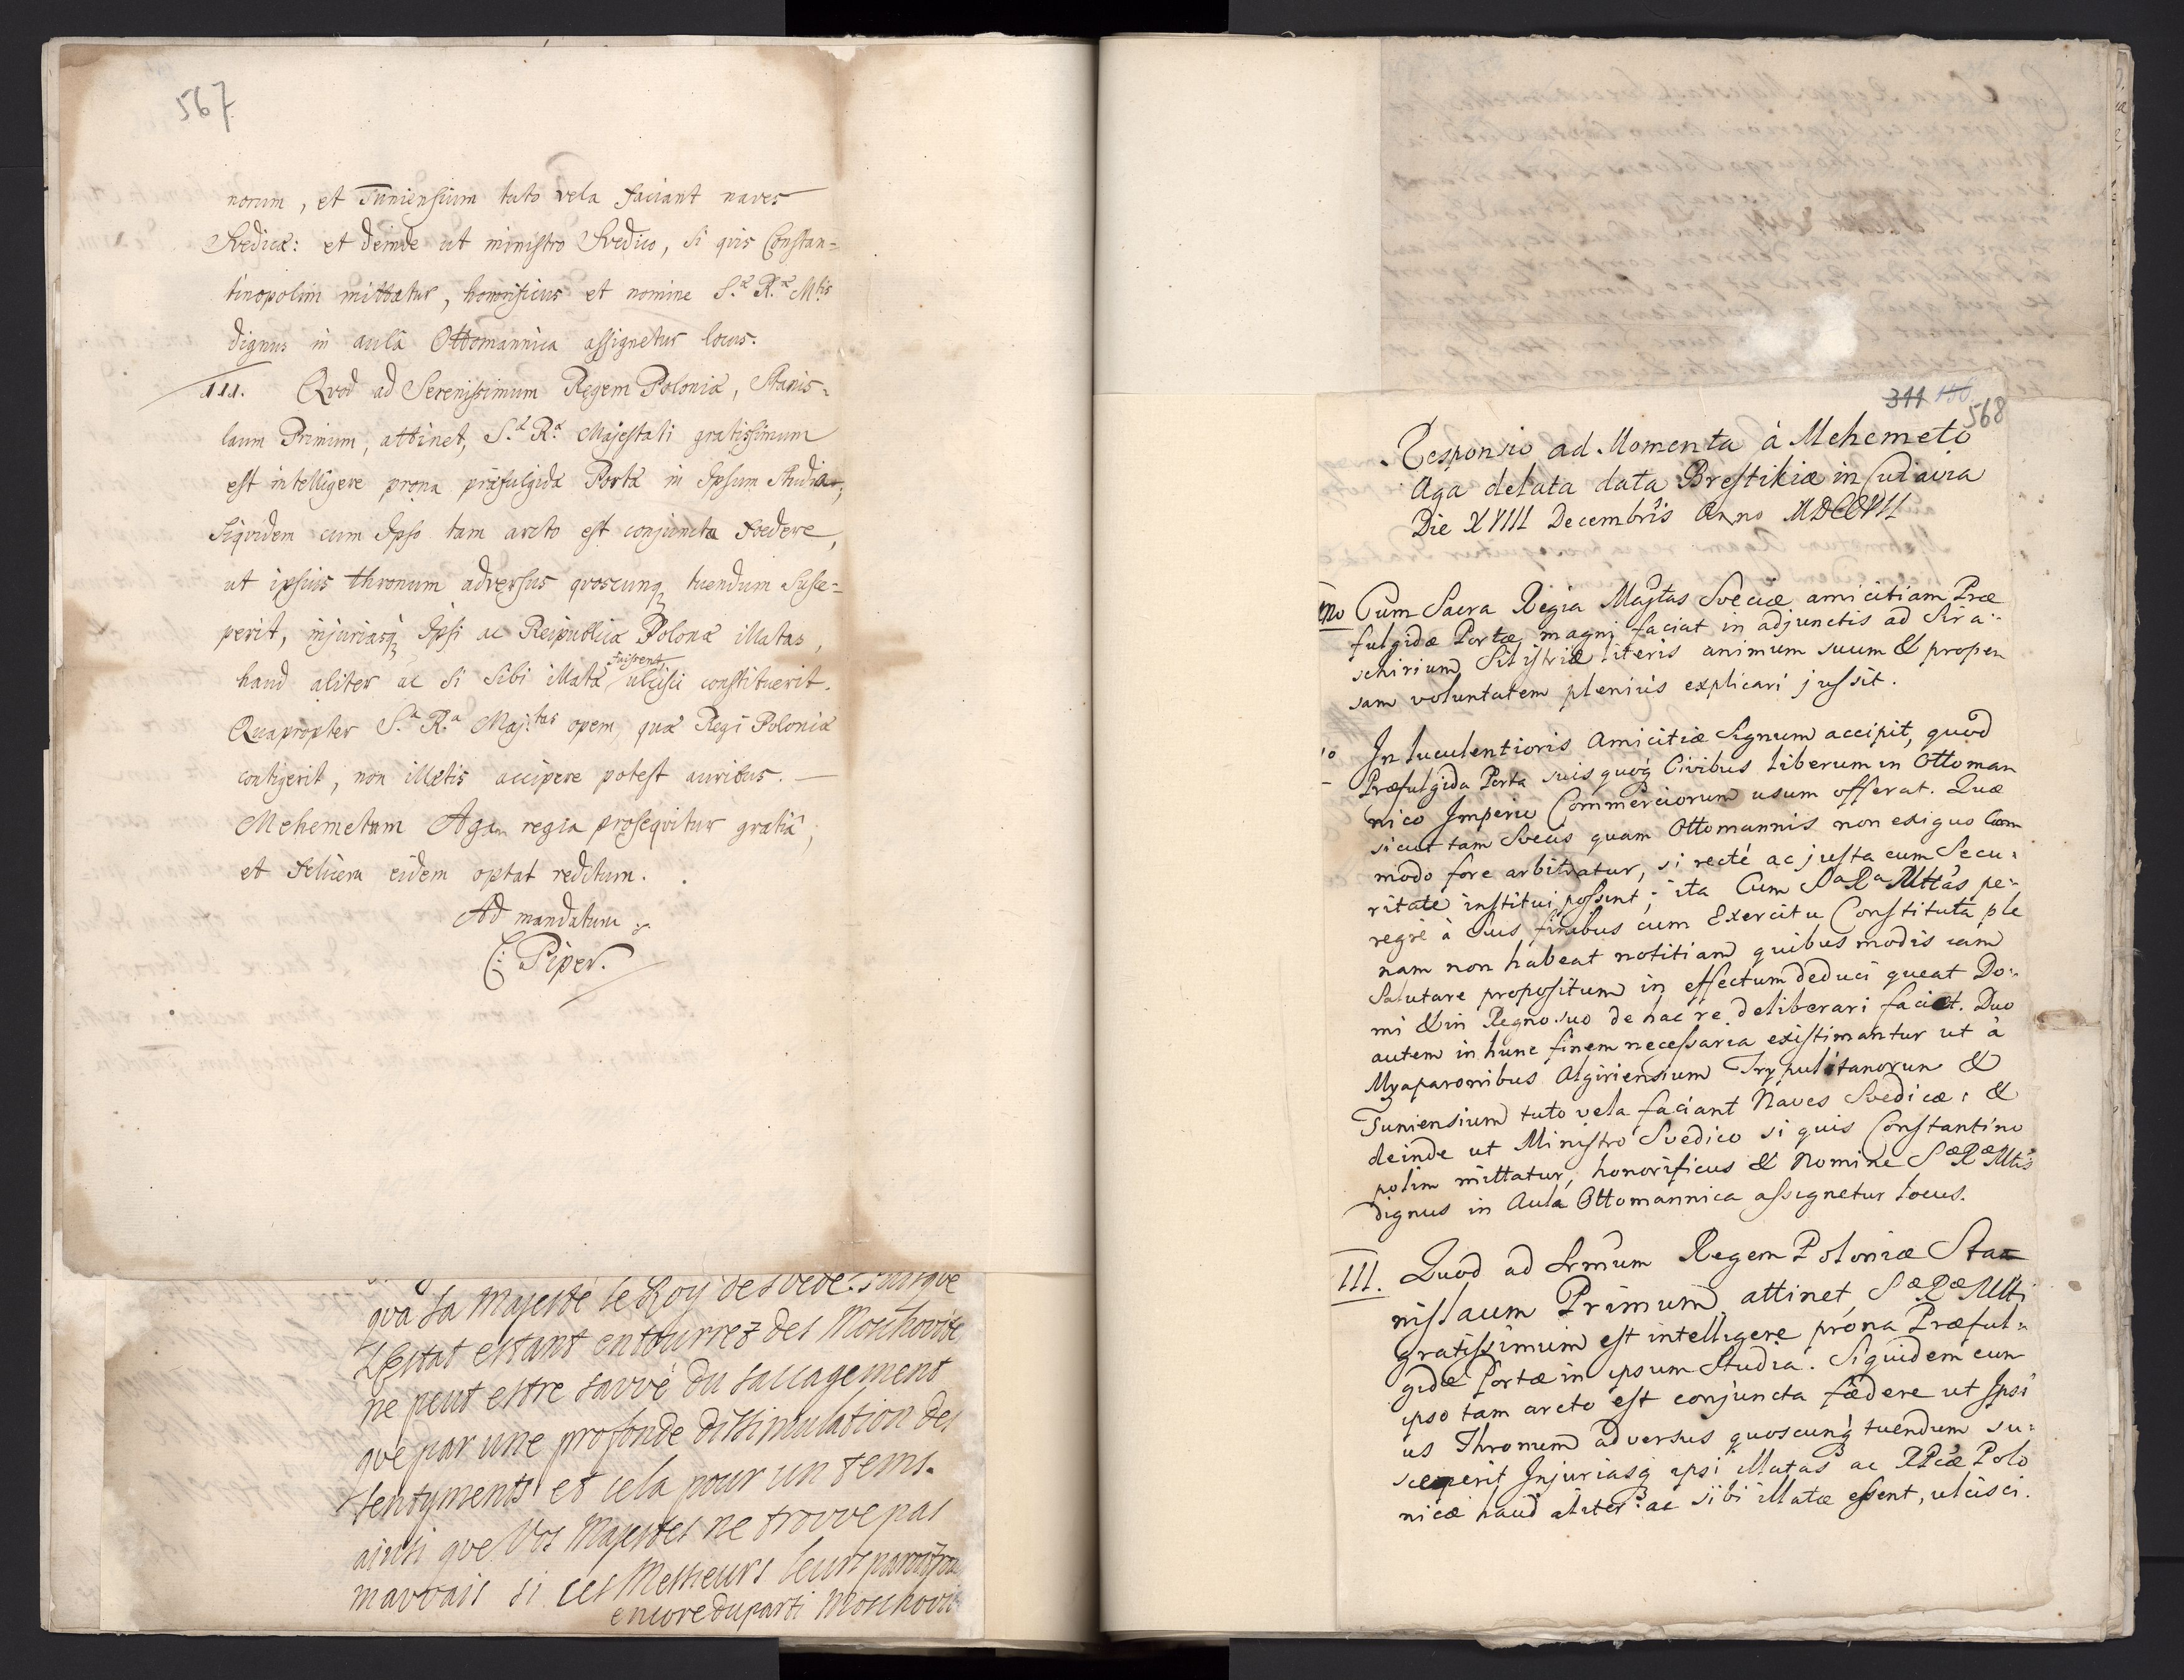 567
norum, et Tuniensium tuto vela faciant naves
Svedicæ: et deinde ut ministro Svedico, si qvis Constan=
tinopolim mittatur, honorificus et nomine S.æ R.æ Mtis
dignus in aulâ Ottomannica assignetur locus.
III. Qvod ad Serenissimum Regem Poloniæ, Stanis=
laum Primum, attinet, S.æ R.æ Majestati gratissimum
est intelligere prona præfulgidæ Portæ in Ipsum studia;
siqvidem cum Ipso tam arcto est conjuncta foedere,
ut ipsius thronum adversus qvoscunq; tuendum susce=
perit, injuriasq; Ipsi ac Reipublicæ Polonæ illatas,
haud aliter ac si sibi illatæ fuissent ulcisci constituerit.
Qvapropter S.a R.a Maj.tas opem, quæ Regi Poloniæ
contigerit, non illætis accipere potest auribus.
Mehemetum Agam regia proseqvitur gratiâ,
et felicem eidem optat reditum.
Ad mandatum
C: Piper.
qvà sa Majesté le Roy de Svede. Puisqve
L'Estat estant entourrez des Moskovite
ne peut estre sauvé du saccagement
qve par une profonde dissimulation des
sentyments et cela pour un tems.
ainsi qve Vos Majestes ne trouve pas
mauvais si ces Messieurs
encore du parti Moskovi
311
568
Responsio ad Momenta à Mehemeto
Aga delata data Brestikiæ in Cuiavia
Die XVIII Decembris Anno MDCCVII
Imo Cum Sacra Regia Majtas Sveciæ amicitiam Præ
fulgidæ Portæ magni faciat in adjunctis ad Sira=
schirium Silistriæ literis animum suum & propen
sam voluntatem plenius explicari jussit.
In luculentioris Amicitiæ Signum accipit, quod
Præfulgida Porta suis quoq; Civibus liberum in Ottoman
nico Imperio Commerciorum usum offerat. Quæ
sicut tam Svecis quam Ottomannis non exiguo Com
modo fore arbitratur, si recté ac justa cum Secu=
ritate institui possint; ita Cum Sa Ra Mtas pe=
regrè à Suis finibus cum Exercitu Constituta ple
nam non habeat notitiam quibus modis tam
Salutare propositum in effectum deduci queat Do=
mi & in Regno suo de hac re deliberari faciet. Duo
autem in hunc finem necessaria existimantur ut à
Myaparonibus Algiriensium Trypulitanorum &
Tuniensium tuto vela faciant Naves Svedicæ: &
deinde ut Ministro Svedico si quis Constantino
polim mittatur, honorificus & Nomine Sæ Ræ Mtis
dignus in Aula Ottomannica assignetur locus.
III. Quod ad Srmum Regem Poloniæ Sta
nislaum Primum attinet Sæ Ræ Mtti
gratissimum est intelligere prona Præful=
gidæ Portæ in ipsum Studia. Siquidem cum
ipso tam arcto est conjuncta fœdere ut Ipsi
us Thronum adversus quoscunq; tuendum su=
sceperit, Injuriasq; ipsi illatas ac RPcæ Polo
nicæ haud aliter ac sibi illatæ essent, ulcisci.